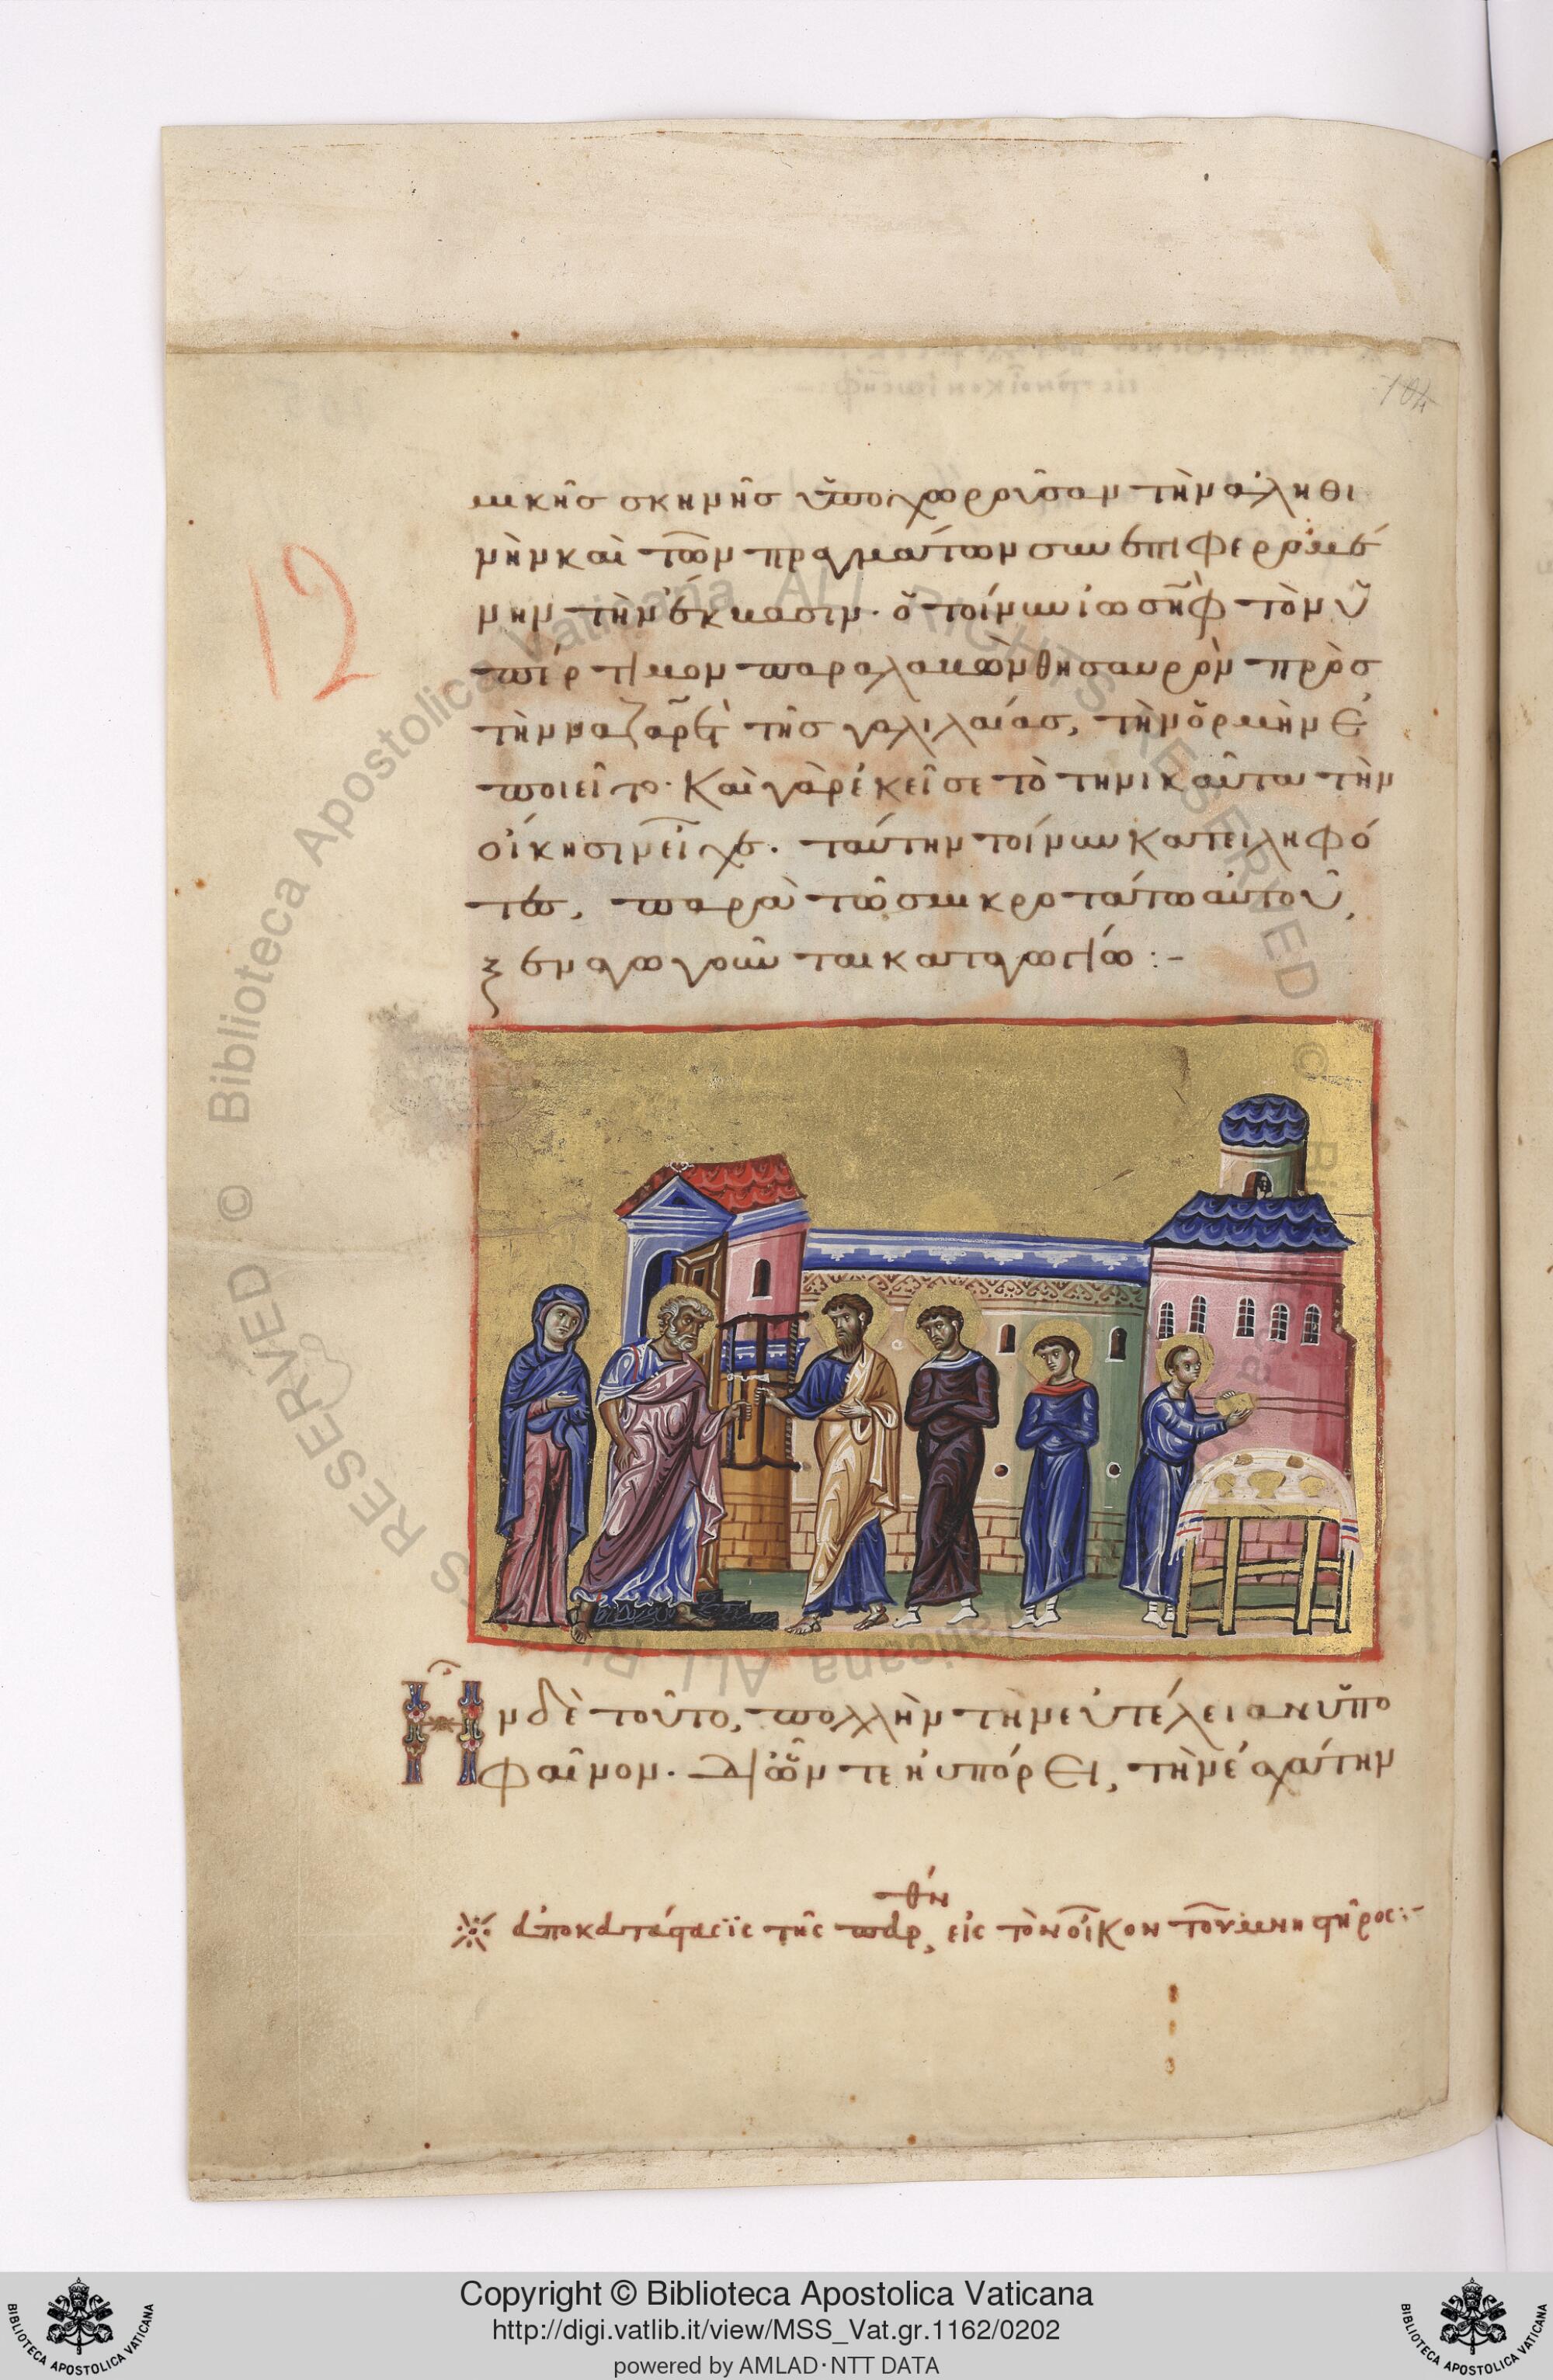 104
μικῆς σκηνῆς ὑποχωροῦσαν τὴν ἀληθι
νὴν καὶ τῶν πραγμάτων συνεπιφερομέ
νην τὴν ἔκβασιν. ὁ τοίνυν ἰωσὴφ τὸν ὑ
πέρτιμον παραλαβὼν θησαυρὸν πρὸς
τὴν ναζαρὲτ τῆς γαλιλαίας, τὴν ὁρμὴν ἐ
ποιεῖτο. Καὶ γὰρ ἐκεῖσε τὸ τηνικαῦτα τὴν
οἴκησιν εἶχε. ταύτην τοίνυν κατειληφό
τες, παρὰ τῶ σμικροτάτω αὐτοῦ,
ξεναγωγοῦνται καταγωγίω :-
12
Ἦν δὲ τοῦτο, πολλὴν τὴν εὐτέλειαν ὑπο
φαῖνον. δι' ὧν τε ηὐπόρει, τὴν ἐσχάτην
ἀποκατάστασϊς τῆς παρθέν, εἰς τὸν οἶκον τοῦ μνηστῆρος:-
© Biblioteca Apostolica Vaticana ALL RIGHTS RESERVED
Copyright © Biblioteca Apostolica Vaticana
http://digi.vatlib.it/view/MSS_Vat.gr.1162/0202
powered by AMLAD·NTT DATA
BIBLIOTECA APOSTOLICA VATICANA
BIBLIOTECA APOSTOLICA VATICANA